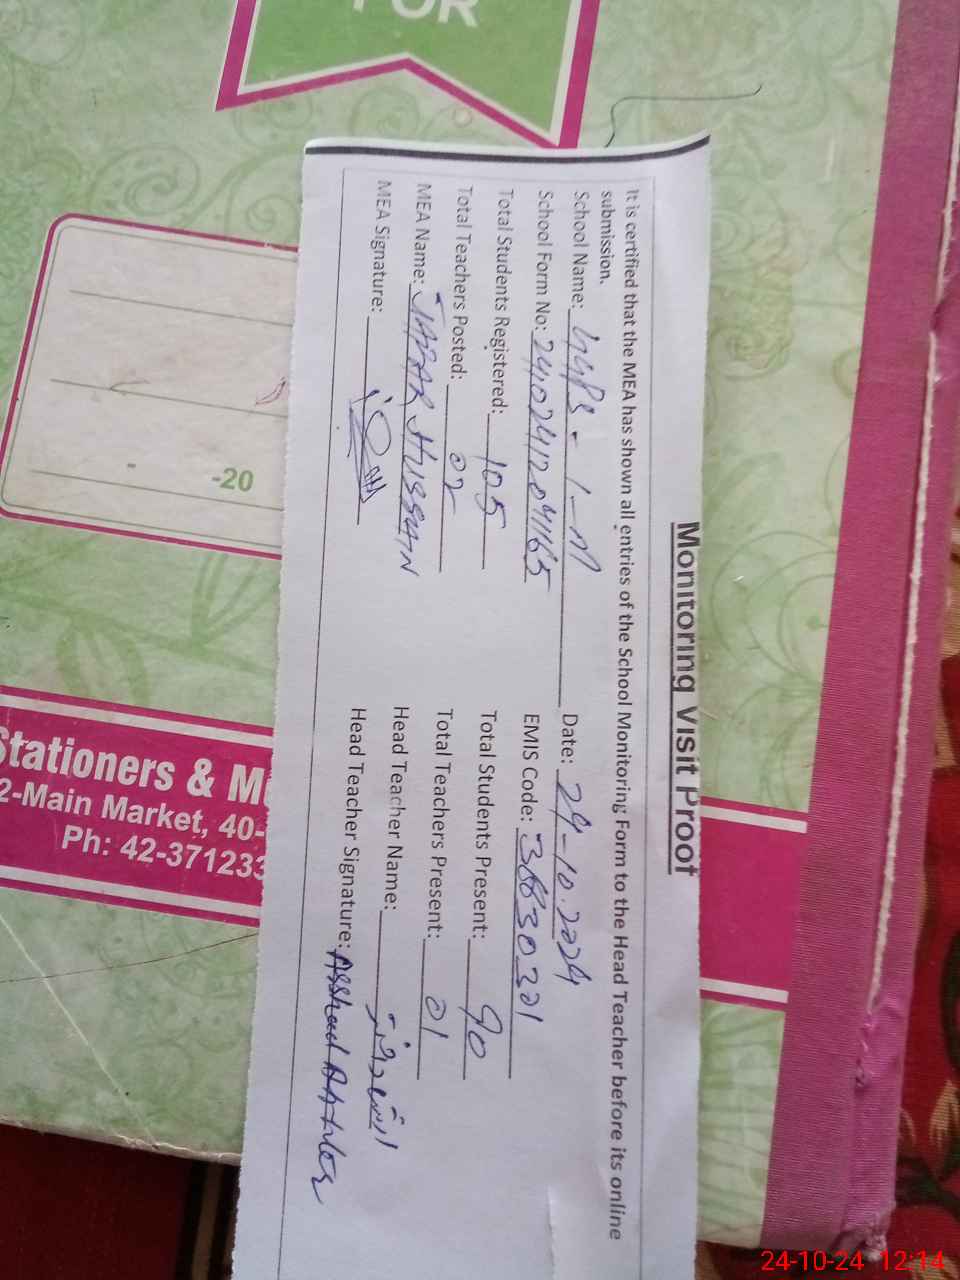 FOR
-20
Stationers & M
2-Main Market, 40-
Ph: 42-371233
Monitoring Visit Proof
It is certified that the MEA has shown all entries of the School Monitoring Form to the Head Teacher before its online
submission.
School Name: GGPS - 1-M Date: 24-10.2024
School Form No: 2410241204165 EMIS Code: 38830301
Total Students Registered: 105 Total Students Present: 90
Total Teachers Posted: 02 Total Teachers Present: 01
MEA Name: JAFAR HUSSAIN Head Teacher Name:
MEA Signature: Head Teacher Signature:
24-10-24 12:14